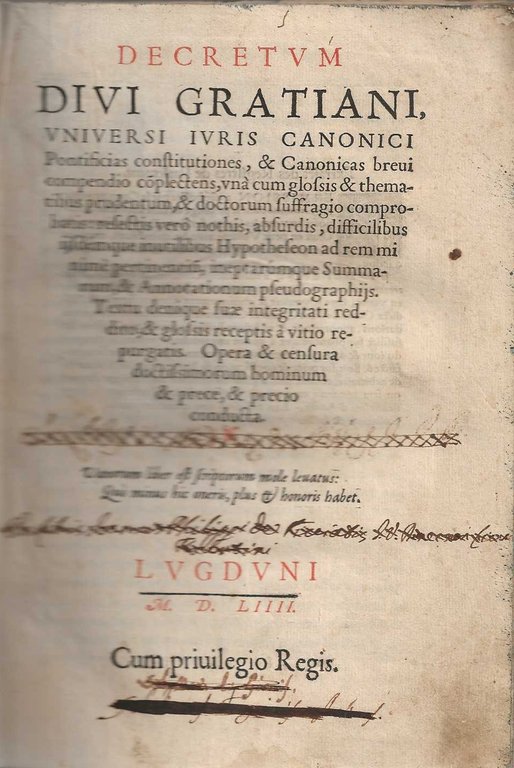 DECRETVM
DIVI GRATIANI,
VNIVERSI IVRIS CANONICI
Pontificias conſtitutiones, & Canonicas breui
compendio cõplectens, vnà cum gloſsis & thema-
tibus prudentum, & doctorum ſuffragio compro-
batis: reſectis verò nothis, abſurdis, difficilibus
ijſdemque inutilibus Hypotheſeon ad rem mi
nimè pertinentiũ, ineptarumque Summa-
rum, & Annotationum pſeudographijs.
Textu denique ſuæ integritati red-
dito, & gloſsis receptis à vitio re-
purgatis. Opera & cenſura
doctiſsimorum hominum
& prece, & precio
conducta.
Vanorum liber eſt ſcriptorum mole leuatus:
Qui minus hic oneris, plus & honoris habet.
LVGDVNI
M. D. LIIII.
Cum priuilegio Regis.